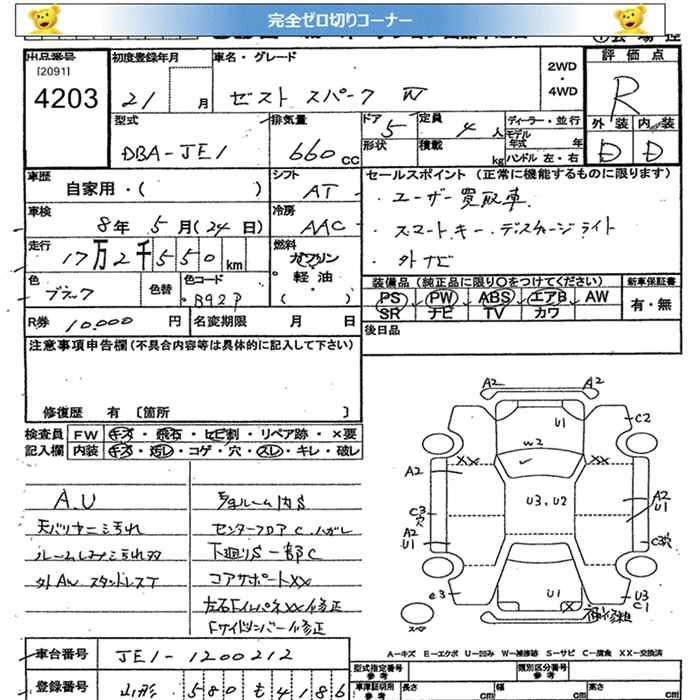 完全ゼロ切りコーナー
出品番号
[2091]
4203
初度登録年月
21 月
車名・グレード
ゼスト スパーク W
2WD
・
4WD
評価点
R
外装 内装
D D
型式
DBA-JE1
排気量
660 CC
ドア 5
形状
定員 4 人
積載 kg
ディーラー・並行
モデル年式 年
ハンドル 左・右
車歴
自家用・( )
シフト
AT
セールスポイント (正常に機能するものに限ります)
・ユーザー買取車.
・スマートキー・ディスチャージライト
・外ナビ
車検
8年 5月(24日)
冷房
AAC
走行
17万2千550km
燃料
ガソリン
軽油
( )
色
ブラック
色替
色コード
B92P
装備品 (純正品に限り○をつけてください)
PS PW ABS エアB AW
SR ナビ TV カワ
新車保証書
有・無
R券 10,000 円
名変期限 月 日
後日品
注意事項申告欄(不具合内容等は具体的に記入して下さい)
修復歴 有 〔箇所 〕
検査員 FW キズ・飛石・ヒビ割・リペア跡・×要
記入欄 内装 キズ・汚レ・コゲ・穴・スレ・キレ・破レ
A.U
天バリヤニ汚れ
外AW スタッドレスT
センターフロアC ハガレ
下廻りS一部C
コアサポートXX
A2 A2
U1
C2
W2
XX XX
A2
U3.U2
A2
U1
C3
穴
A2
U1
C3穴
C3
U1
X
U3
C1
スペア
A−キズ E−エクボ U−凹み W−補修跡 S−サビ C−腐食 XX−交換済
車台番号 JE1-1200212
登録番号 山形 580 も 4186
型式指定番号
参考
類別区分番号
参考
車庫証明用
参考
長さ cm
幅 cm
高さ cm